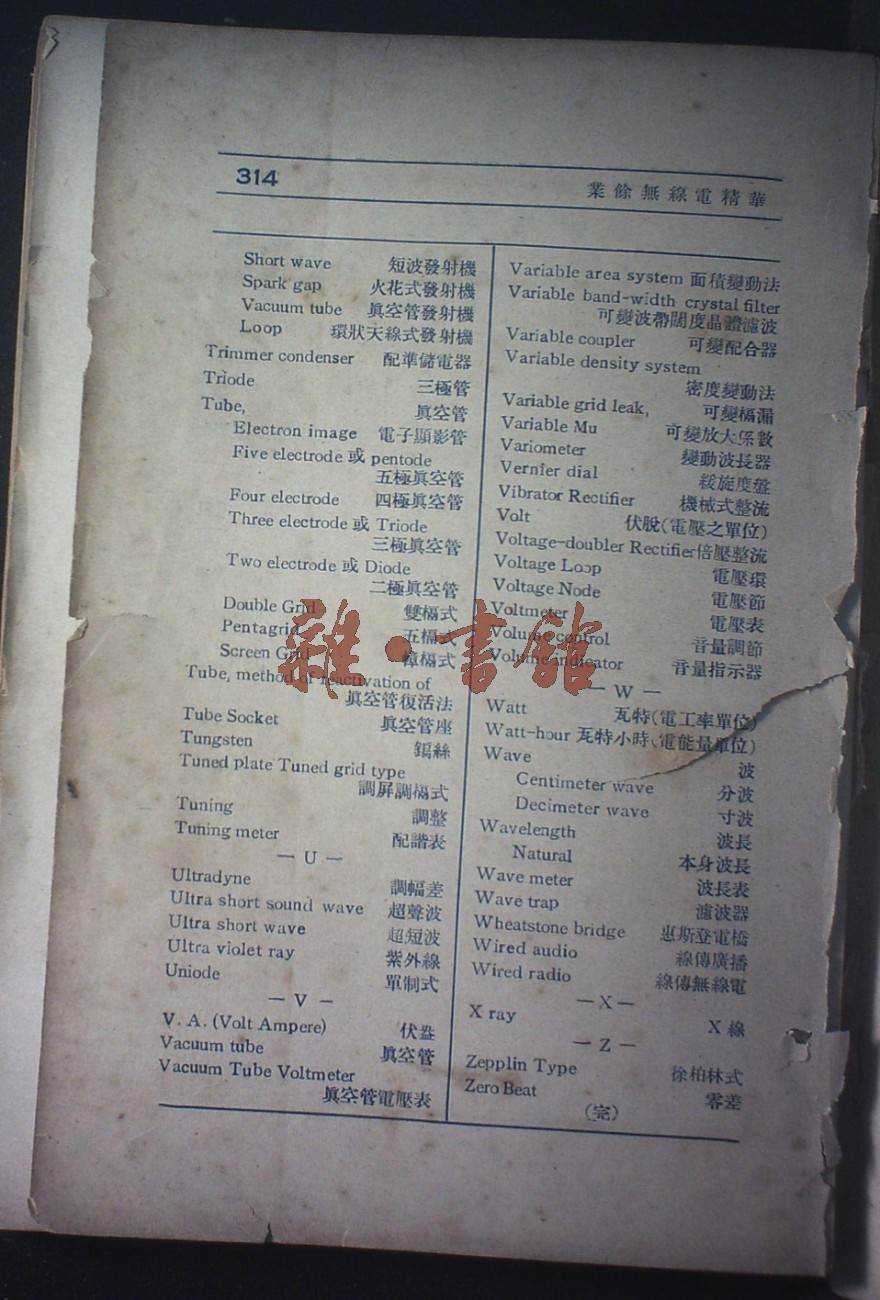 314
業餘無線電精華
Short wave 短波發射機
Spark gap 火花式發射機
Vacuum tube 眞空管發射機
Loop 環狀天線式發射機
Trimmer condenser 配準儲電器
Triode 三極管
Tube, 眞空管
Electron image 電子顯影管
Five electrode 或 pentode
五極眞空管
Four electrode 四極眞空管
Three electrode 或 Triode
三極眞空管
Two electrode 或 Diode
二極眞空管
Double Grid 雙柵式
Pentagrid 五柵式
Screen Grid 幛柵式
Tube, method of reactivation of
眞空管復活法
Tube Socket 眞空管座
Tungsten 鎢絲
Tuned plate Tuned grid type
調屏調柵式
Tuning 調整
Tuning meter 配諧表
— U —
Ultradyne 調幅差
Ultra short sound wave 超聲波
Ultra short wave 超短波
Ultra violet ray 紫外線
Uniode 單制式
— V —
V. A. (Volt Ampere) 伏盎
Vacuum tube 眞空管
Vacuum Tube Voltmeter
眞空管電壓表
Variable area system 面積變動法
Variable band-width crystal filter
可變波帶闊度晶體濾波
Variable coupler 可變配合器
Variable density system
密度變動法
Variable grid leak, 可變柵漏
Variable Mu 可變放大係數
Variometer 變動波長器
Vernier dial 緩旋度盤
Vibrator Rectifier 機械式整流
Volt 伏脫(電壓之單位)
Voltage-doubler Rectifier倍壓整流
Voltage Loop 電壓環
Voltage Node 電壓節
Voltmeter 電壓表
Volume control 音量調節
Volume indicator 音量指示器
— W —
Watt 瓦特(電工率單位)
Watt-hour 瓦特小時(電能量單位)
Wave 波
Centimeter wave 分波
Decimeter wave 寸波
Wavelength 波長
Natural 本身波長
Wave meter 波長表
Wave trap 濾波器
Wheatstone bridge 惠斯登電橋
Wired audio 線傳廣播
Wired radio 線傳無線電
— X —
X ray X 線
— Z —
Zepplin Type 徐柏林式
Zero Beat 零差
(完)
雜·書館